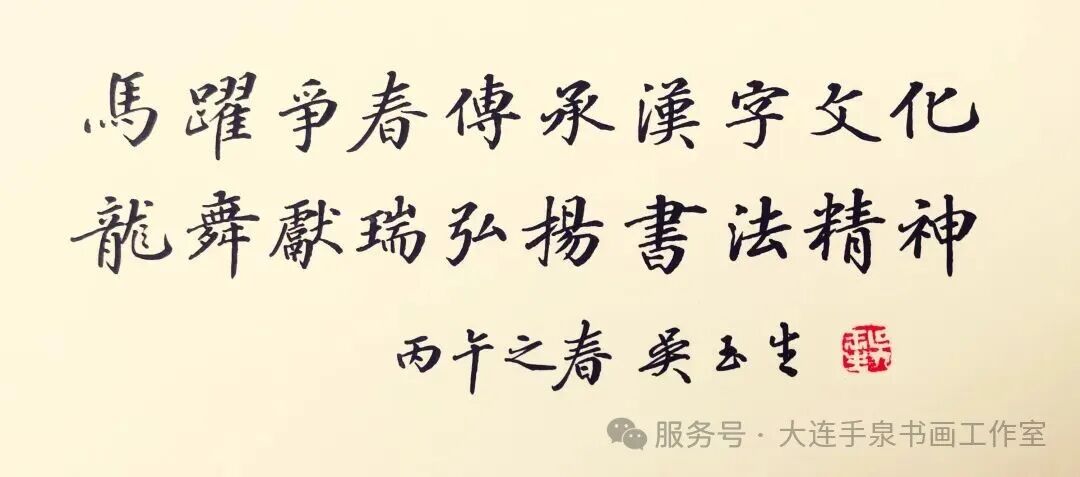 馬躍爭春傳承漢字文化
龍舞獻瑞弘揚書法精神
丙午之春 吳玉生
服务号 · 大连手泉书画工作室